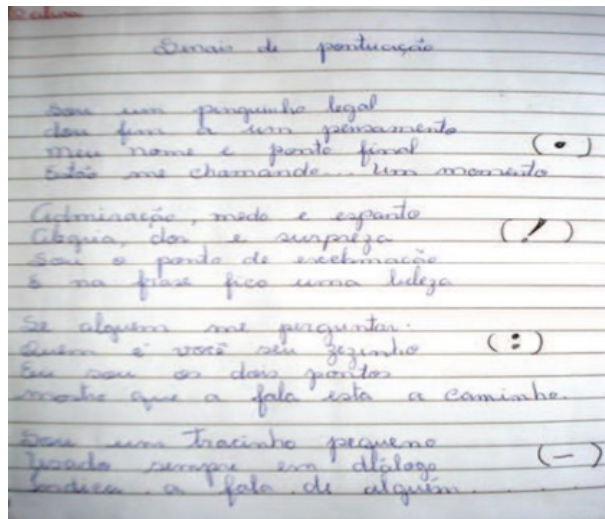 Sinais de pontuação
Sou um pinguinho legal
dou fim a um pensamento
meu nome e ponto final (.)
Estão me chamando... Um momento
Admiração, medo e espanto
Alegria, dor e surpreza (!)
Sou o ponto de exclamação
E na frase fico uma beleza
Se alguém me perguntar.
Quem é você seu zezinho (:)
Eu sou os dois pontos
mostro que a fala esta a caminho.
Sou um tracinho pequeno
Usado sempre em diálogo (-)
Indica a fala de alguém